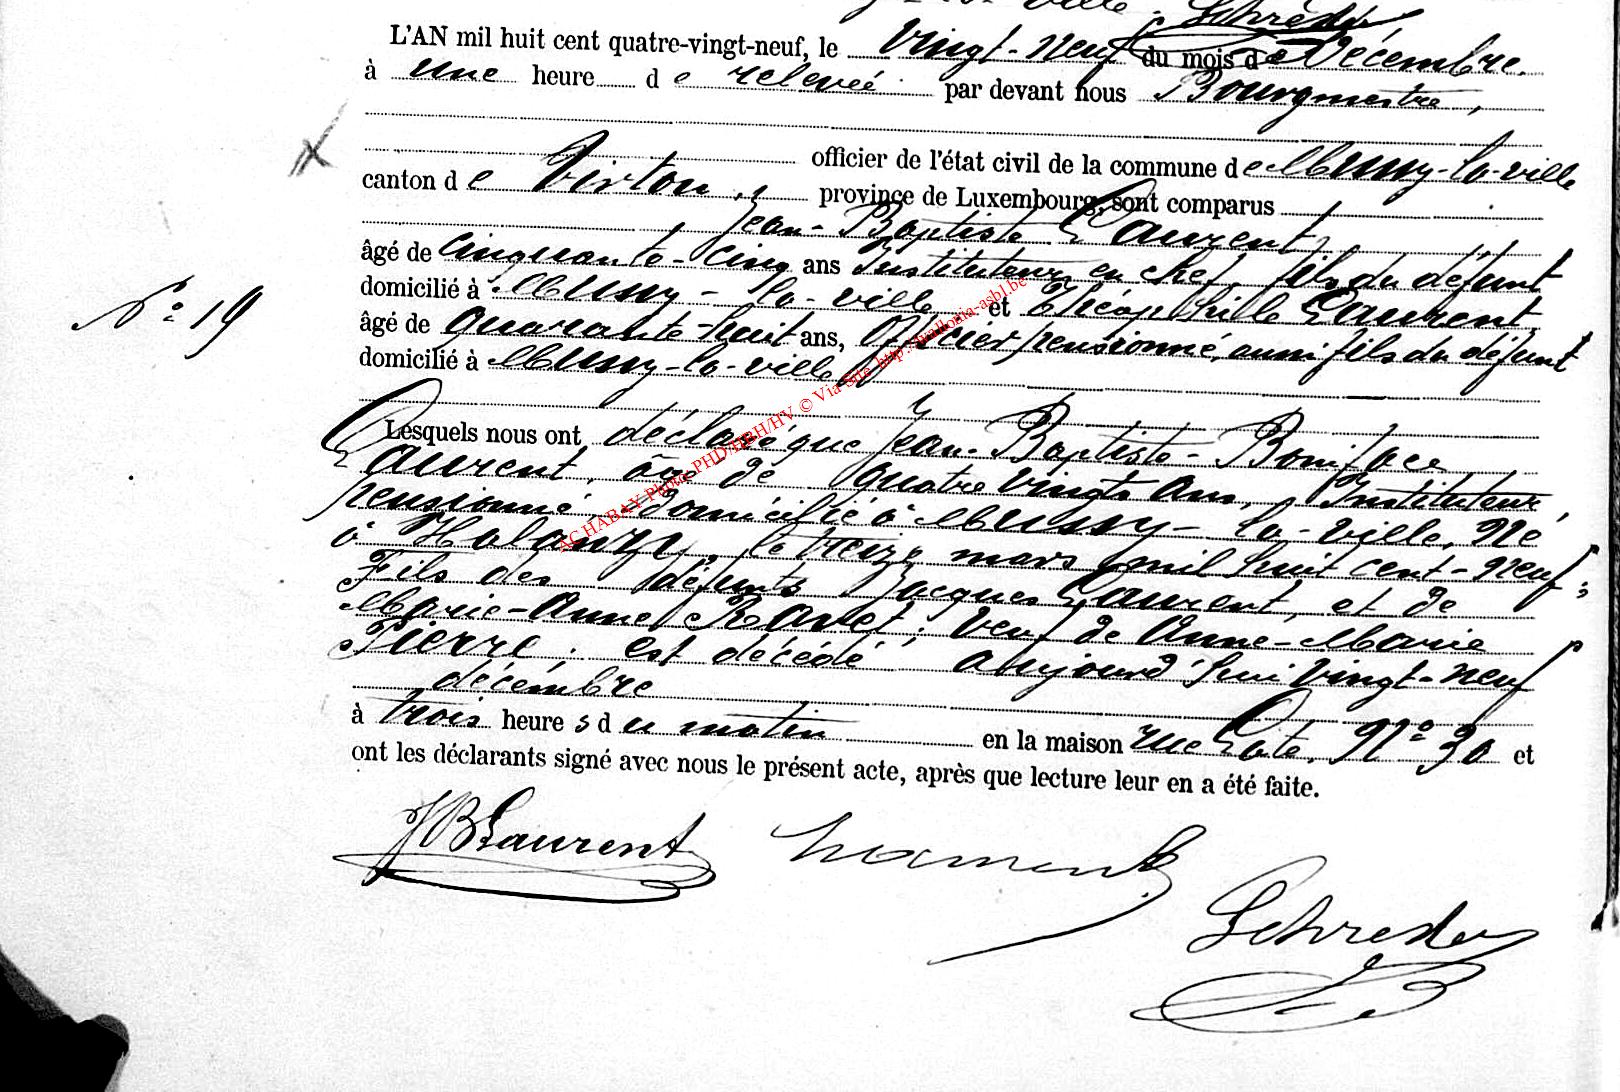 ville. Schréder
L'AN mil huit cent quatre-vingt-neuf, le vingt-neuf du mois de Décembre.
à une heure de relevée par devant nous Bourgmestre,
officier de l'état civil de la commune de Mussy-la-ville
canton de Virton, province de Luxembourg, sont comparus
Jean-Baptiste Laurent,
âgé de cinquante-cinq ans Instituteur en chef, fils du défunt
domicilié à Mussy-la-ville et Théophille Laurent,
âgé de quarante-huit ans, Officier pensionné, aussi fils du défunt
domicilié à Mussy-la-ville
Lesquels nous ont déclaré que Jean-Baptiste-Boniface
Laurent, âgé de quatre vingts ans, Instituteur
pensionné domicilié à Mussy-la-ville, né
à Halanzy, le treize mars mil huit cent-neuf;
Fils des défunts Jacques Laurent, et de
Marie-Anne Ravet; veuf de Anne-Marie
Pierre; est décédé aujourd'hui vingt-neuf
décembre
à trois heures du matin en la maison rue Cote, N° 30 et
ont les déclarants signé avec nous le présent acte, après que lecture leur en a été faite.
N° 19
JBLaurent
Schréder
AC HABAY Photos PHD/HBH/HV © Via Site http://wallonia-asbl.be